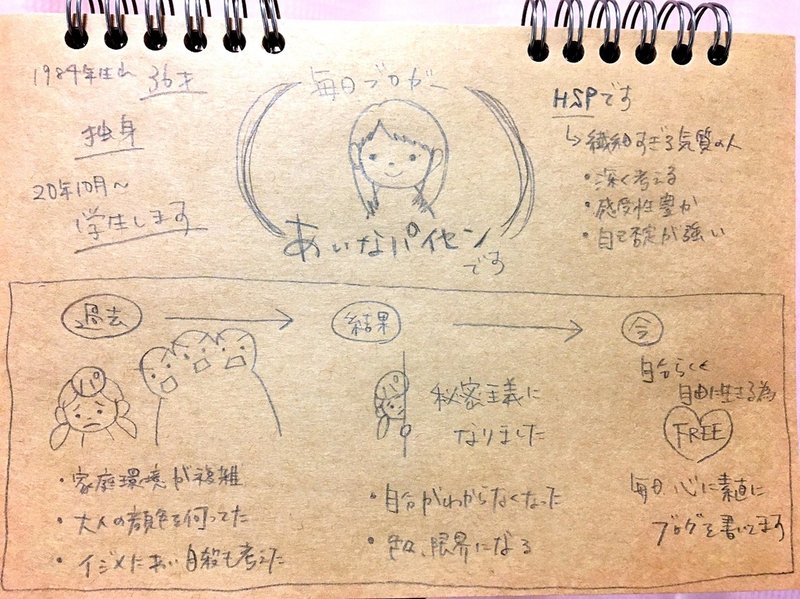 1984年生れ 36才
独身
20年10月～
学生します
毎日ブロガー
あいなパイセン
です
HSPです
↳繊細すぎる気質の人
・深く考える
・感受性豊か
・自己否定が強い
過去
パ
・家庭環境が複雑
・大人の顔色を伺ってた
・イジメにあい自殺も考えた
結果
秘密主義に
なりました
・自分がわからなくなった
・色々、限界になる
今
自分らしく
自由に生きる為
FREE
毎日、心に素直に
ブログを書いてます